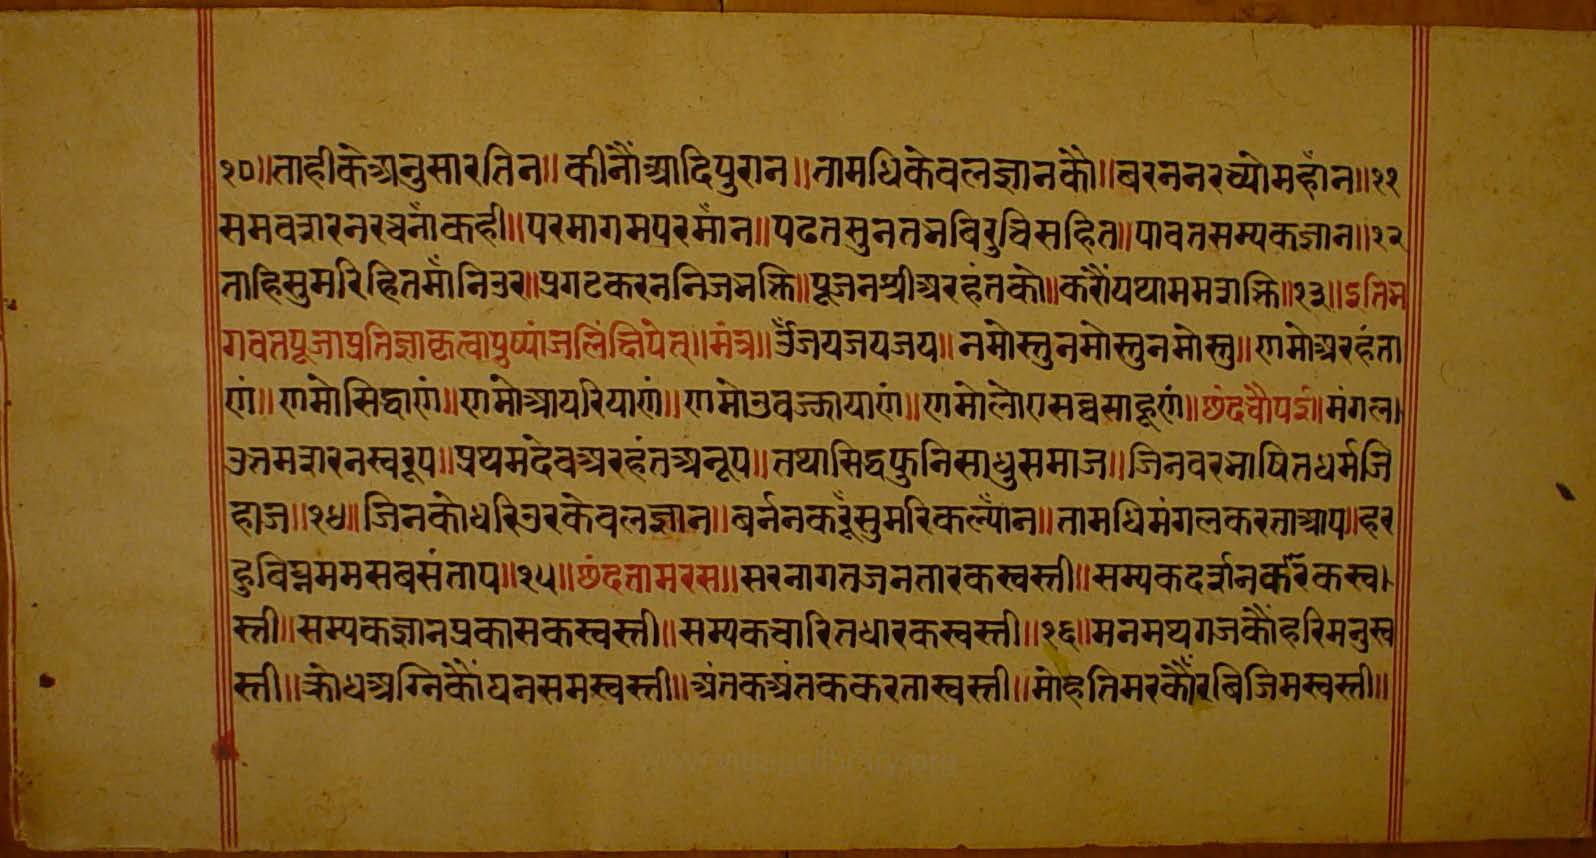 १०॥ताहीकेअनुसारतिन॥कीनौंआदिपुरान॥तामधिकेवलज्ञानकौ॥बरननरच्योमहाँन॥११
समवशरनरचनाँकही॥परमागमपरमाँन॥पढतसुनतभविरुचिसहित॥पावतसम्यकज्ञान॥१२
ताहिसुमरिहितमाँनिउर॥प्रगटकरननिजभक्ति॥पूजनश्रीअरहंतको॥करौंयथाममशक्ति॥१३॥इतिभ
गवतपूजाप्रतिज्ञाकृत्वापुष्पांजलिंक्षिपेत्॥मंत्र॥ॐजयजयजय॥नमोस्तुनमोस्तुनमोस्तु॥णमोअरहंता
णं॥णमोसिद्धाणं॥णमोआयरियाणं॥णमोउवज्झायाणं॥णमोलोएसव्वसाहूणं॥छंदचौपई॥मंगल।
उतमशरनस्वरूप॥प्रथमदेवअरहंतअनूप॥तथासिद्धफुनिसाधुसमाज॥जिनवरभाषितधर्मजि
हाज॥१४॥जिनकोधरिउरकेवलज्ञान॥बर्ननकरूँसुमरिकल्याँन॥तामधिमंगलकरताआप॥हर
हुविघ्नममसबसंताप॥१५॥छंदतामरस॥सरनागतजनतारकस्वस्ती॥सम्यकदर्शनकारकस्व।
स्ती॥सम्यकज्ञानप्रकासकस्वस्ती॥सम्यकचारितधारकस्वस्ती॥१६॥मनमथगजकौंहरिमनुस्व
स्ती॥क्रोधअग्निकौंघनसमस्वस्ती॥अंतकअंतककरतास्वस्ती॥मोहतिमरकौंरबिजिमस्वस्ती॥